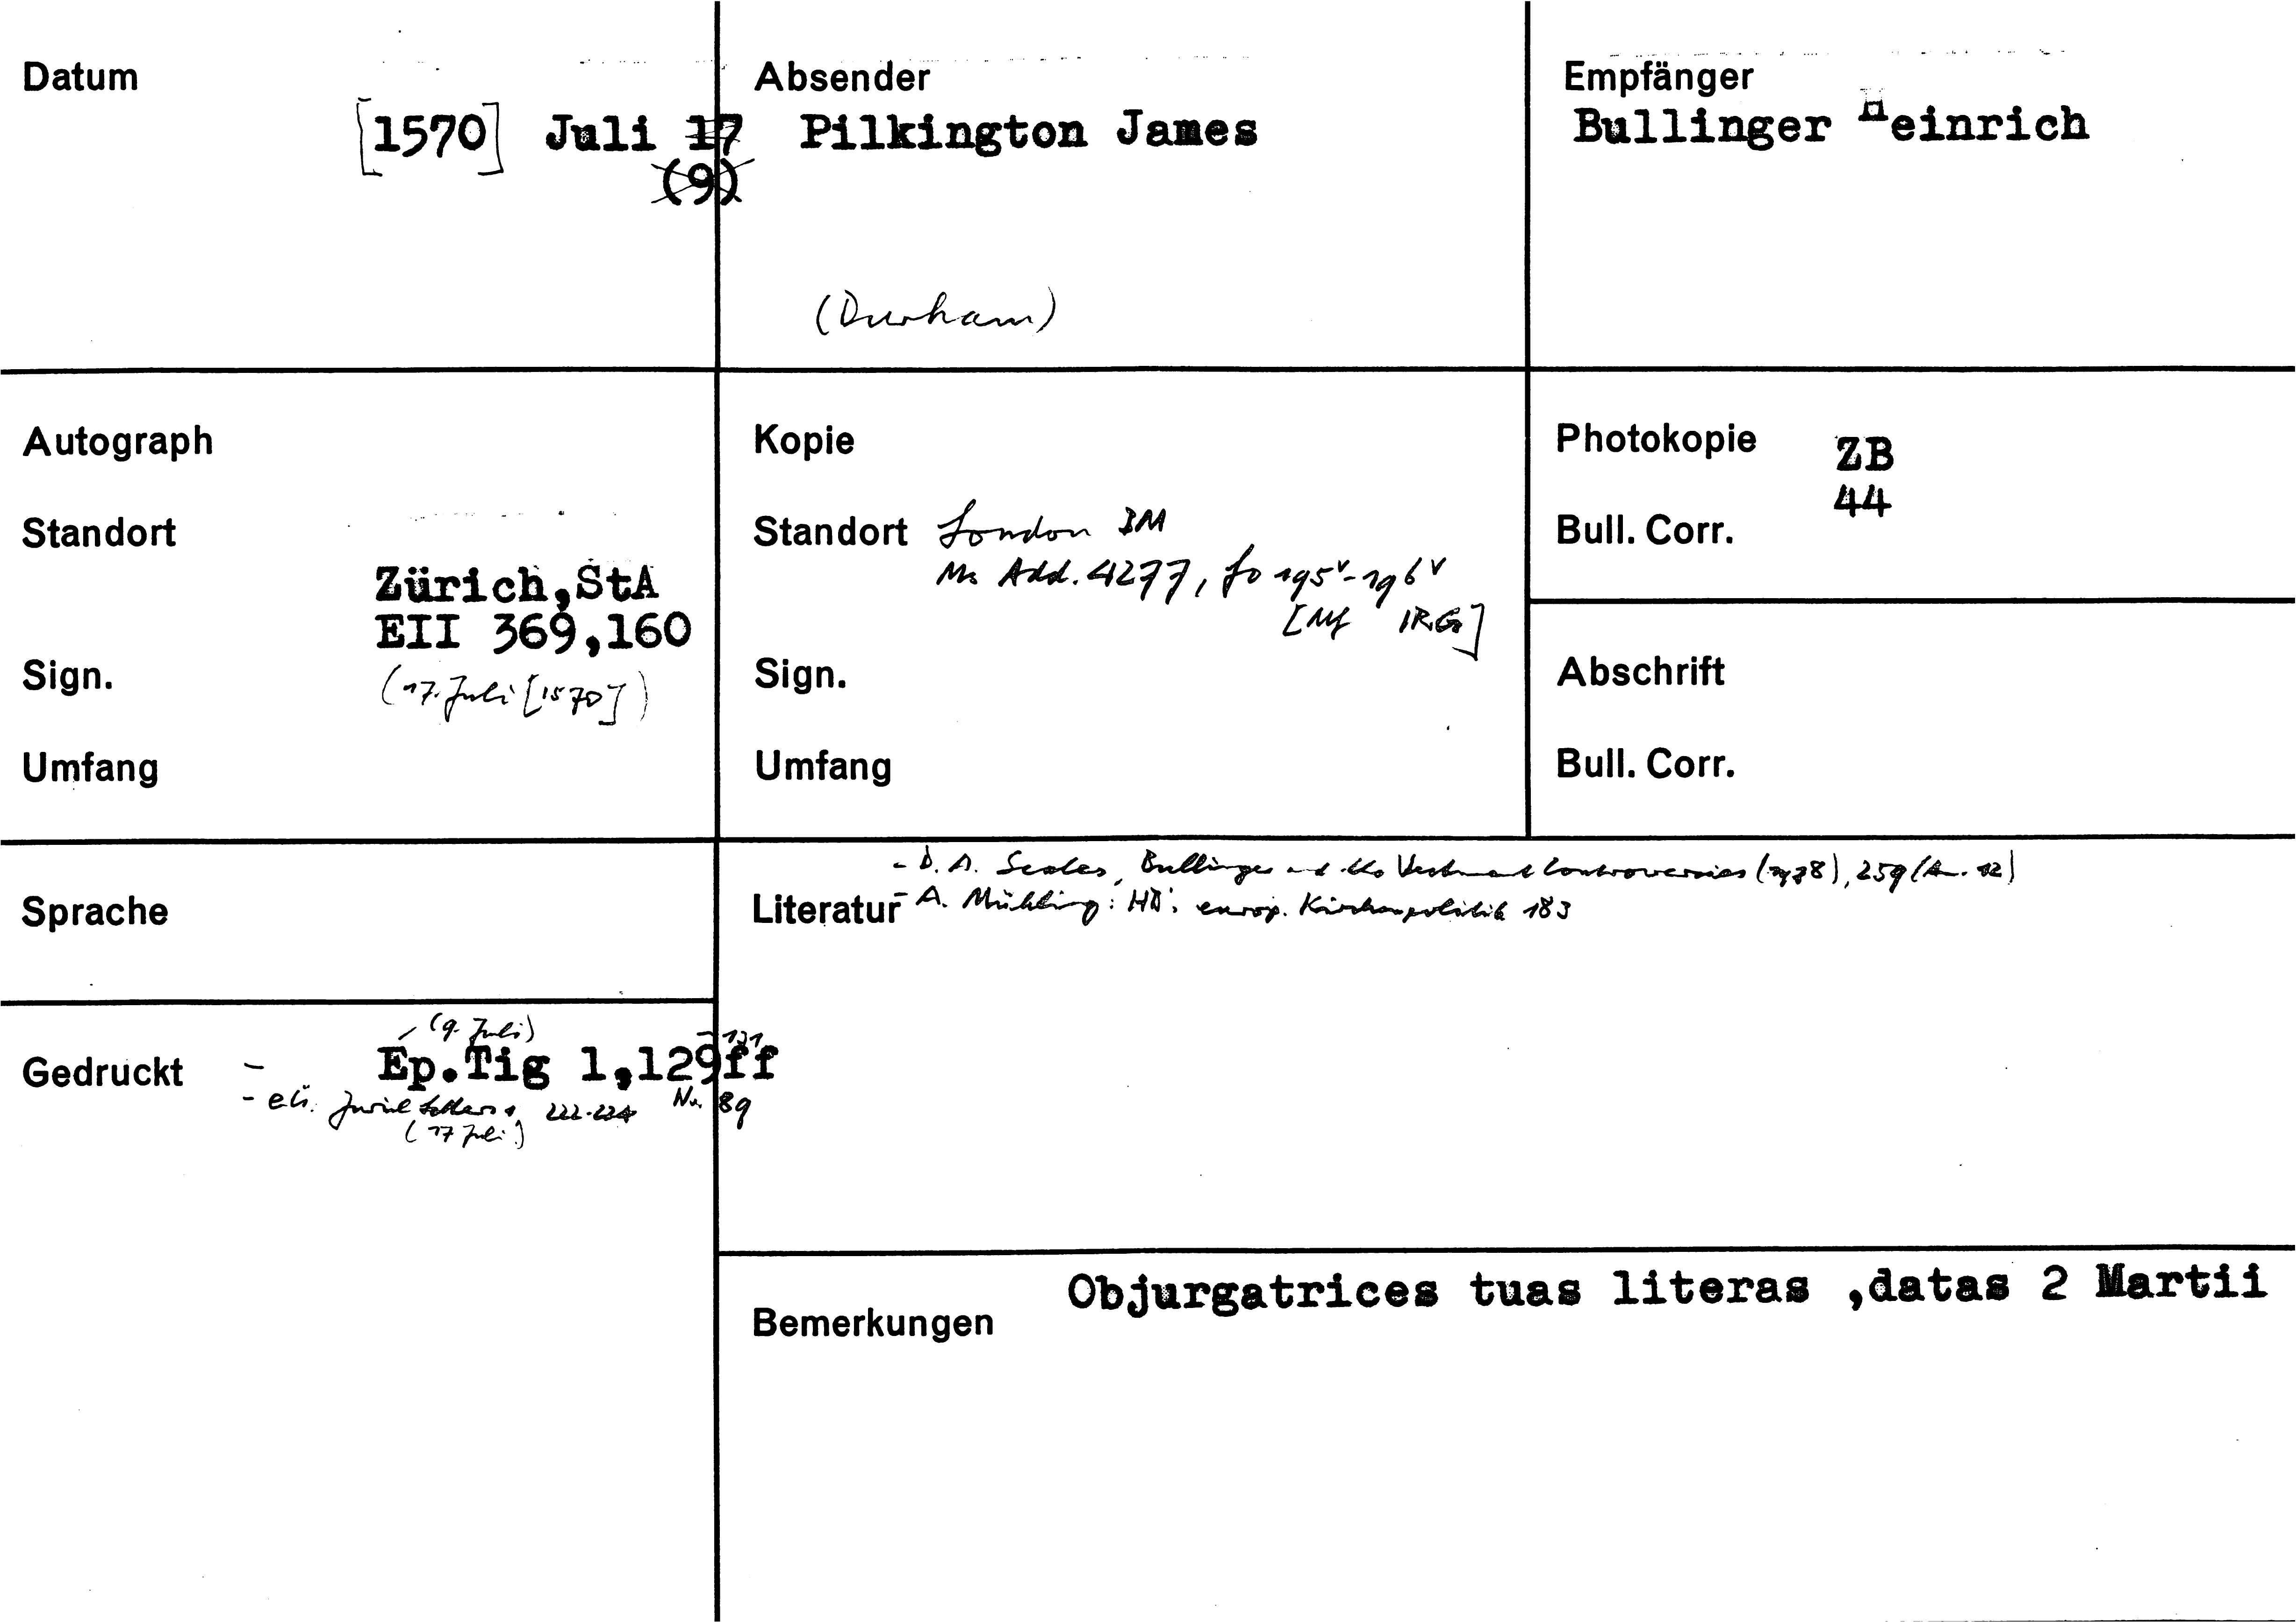 Datum
[1570] Juli 17
(9)
Absender
Pilkington James
(Durham)
Empfänger
Bullinger Heinrich
Autograph
Standort
Zürich,StA
EII 369,160
Sign.
(17. Juli [1570])
Umfang
Kopie
Standort London BM
Ms Add. 4277, fo 195v-196v
[Mf IRG]
Sign.
Umfang
Photokopie ZB
44
Bull. Corr.
Abschrift
Bull. Corr.
Sprache
Literatur
- D. A. Scales, Bullinger and the Vestment Controversies (1978), 259 (An. 12)
- A. Mühling: HB's europ. Kirchenpolitik 183
Gedruckt
(9. Juli) -131
- Ep.Tig 1,129ff
- Zurich Letters 1, 222-224 Nr. 89
(17 Juli)
Bemerkungen
Objurgatrices tuas literas ,datas 2 Martii